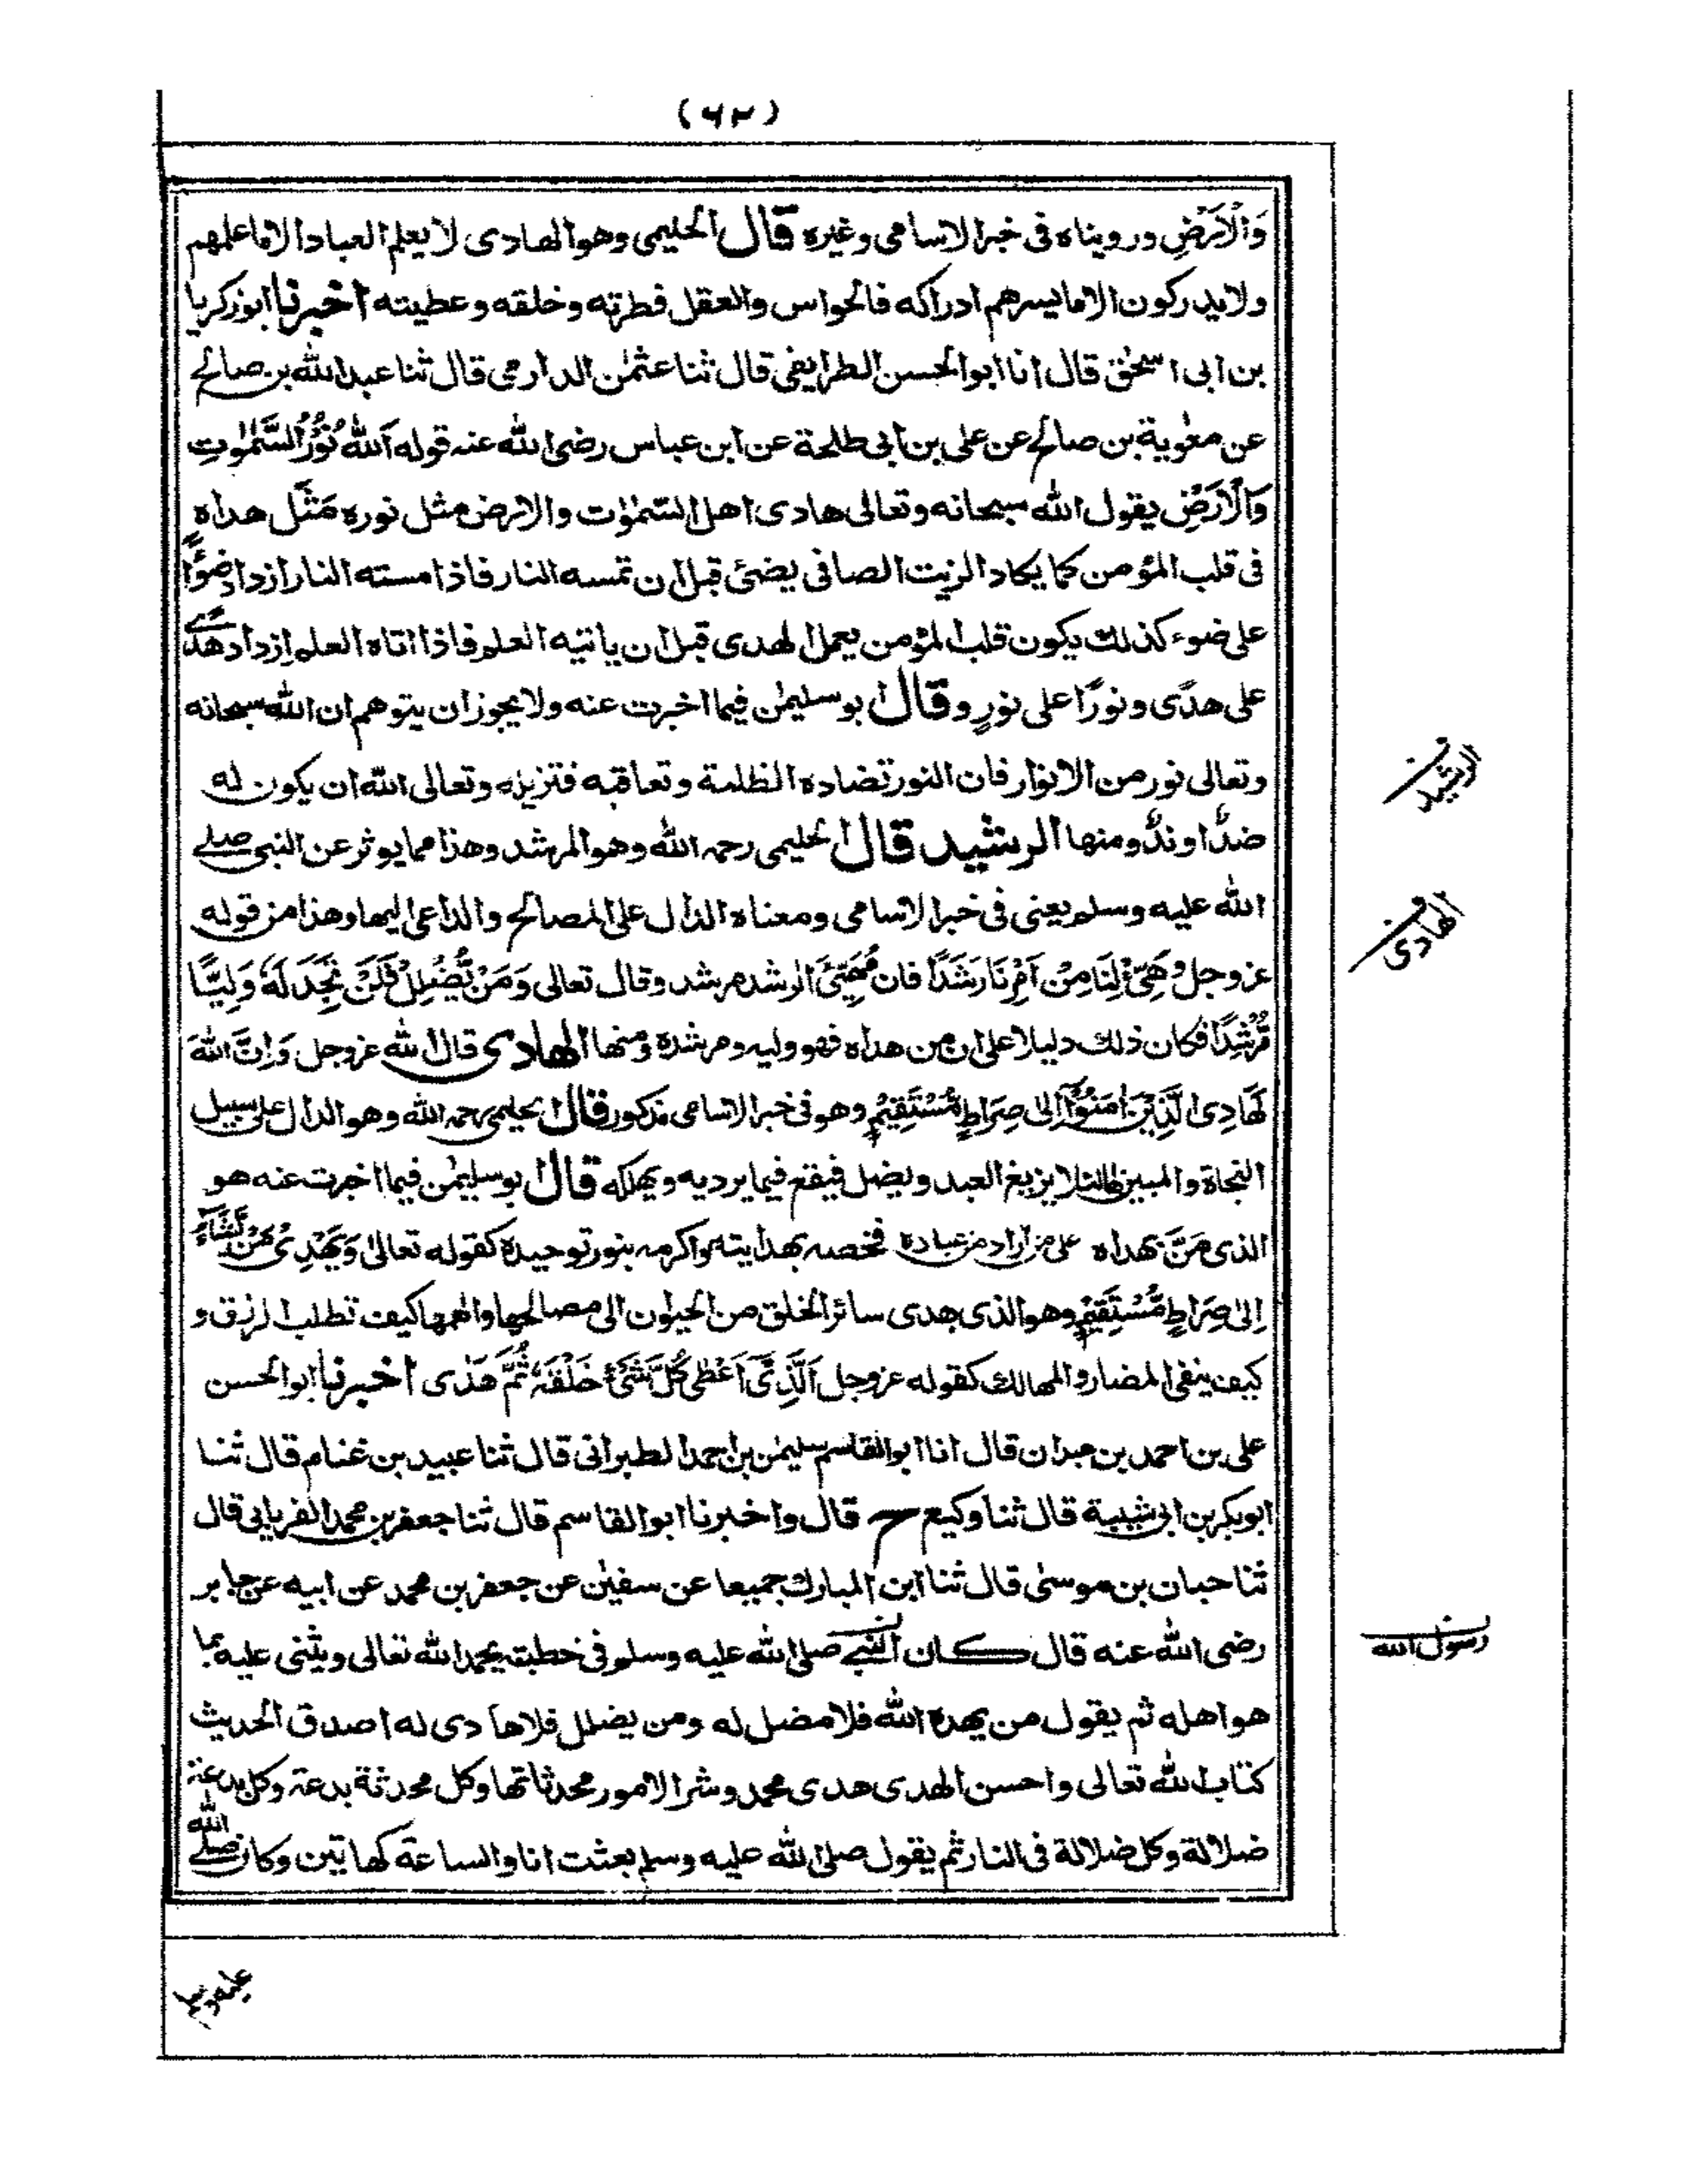 (٦٢)
وَالْاَرْضِ ورويناه فى خبر الاسامى وغيره قال الحليمى وهو الهادى لا يعلم العباد الا ما علمهم
ولا يدركون الا ما يسر هم ادراكه فالحواس والعقل فطرته وخلقه وعطيته اخبرنا ابو زكريا
بن ابى اسحٰق قال انا ابو الحسن الطرايفى قال ثنا عثمٰن الدارمى قال ثنا عبد الله بن صالح
عن معٰوية بن صالح عن على بن ابى طلحة عن ابن عباس رضى الله عنه قوله اَللّٰهُ نُوْرُ السَّمٰوٰتِ
وَالْاَرْضِ يقول الله سبحانه وتعالى هادى اهل السمٰوٰت والارض مثل نوره مَثَل هداه
فى قلب المؤمن كما يكاد الزيت الصافى يضئ قبل ان تمسه النار فاذا مسته النار ازداد ضؤًا
على ضوء كذلك يكون قلب المؤمن يعمل الهدى قبل ان ياتيه العلم فاذا اتاه العلم ازداد هدًى
على هدًى ونورًا على نورٍ وقال ابو سليمٰن فيما اخبرت عنه ولا يجوز ان يتوهم ان الله سبحانه
وتعالى نور من الانوار فان النور تضاده الظلمة وتعاقبه فتزيله وتعالى الله ان يكون له
ضدٌّ او ندٌّ ومنها الرشيد قال الحليمى رحمه الله وهو المرشد وهذا مما يوثر عن النبى صلى
الله عليه وسلم يعنى فى خبر الاسامى ومعناه الدال على المصالح والداعى اليها وهذا من قوله
عز وجل وَهَيِّئْ لَنَا مِنْ اَمْرِنَا رَشَدًا فان مُهَيِّئَ الرشد مرشد وقال تعالى وَمَنْ يُّضْلِلْ فَلَنْ تَجِدَ لَهٗ وَلِيًّا
مُّرْشِدًا فكان ذلك دليلا على ان من هداه فهو وليه ومرشده ومنها الهادى قال الله عز وجل وَاِنَّ اللّٰهَ
لَهَادِى الَّذِيْنَ اٰمَنُوْٓا اِلٰى صِرَاطٍ مُّسْتَقِيْمٍ وهو فى خبر الاسامى مذكور قال الحليمى رحمه الله وهو الدال على سبيل
النجاة والمبين لها لئلا يزيغ العبد ويضل فيقع فيما يرديه ويهلكه قال ابو سليمٰن فيما اخبرت عنه هو
الذى مَنَّ بهداه على من اراد من عباده فخصه بهدايته واكرمه بنور توحيده كقوله تعالىٰ وَيَهْدِىْ مَنْ يَّشَآءُ
اِلىٰ صِرَاطٍ مُّسْتَقِيْمٍ وهو الذى هدى سائر الخلق من الحيوان الى مصالحها والهمها كيف تطلب الرزق و
كيف يتقى المضار والمهالك كقوله عز وجل اَلَّذِىْٓ اَعْطٰى كُلَّ شَىْءٍ خَلْقَهٗ ثُمَّ هَدٰى اخبرنا ابو الحسن
على بن احمد بن عبدان قال انا ابو القاسم سليمٰن بن احمد الطبرانى قال ثنا عبيد بن غنام قال ثنا
ابو بكر بن ابى شيبة قال ثنا وكيع ح قال واخبرنا ابو القاسم قال ثنا جعفر بن محمد الفريابى قال
ثنا حبان بن موسىٰ قال ثنا ابن المبارك جميعا عن سفيٰن عن جعفر بن محمد عن ابيه عن جابر
رضى الله عنه قال كان النبى صلى الله عليه وسلم فى خطبته يحمد الله تعالى ويثنى عليه بما
هو اهله ثم يقول من يهده الله فلا مضل له ومن يضلل فلا هادى له اصدق الحديث
كتاب الله تعالى واحسن الهدى هدى محمد وشر الامور محدثاتها وكل محدثة بدعة وكل بدعة
ضلالة وكل ضلالة فى النار ثم يقول صلى الله عليه وسلم بعثت انا والساعة كهاتين وكان صلى الله
الرشيد
الهادى
رسول الله